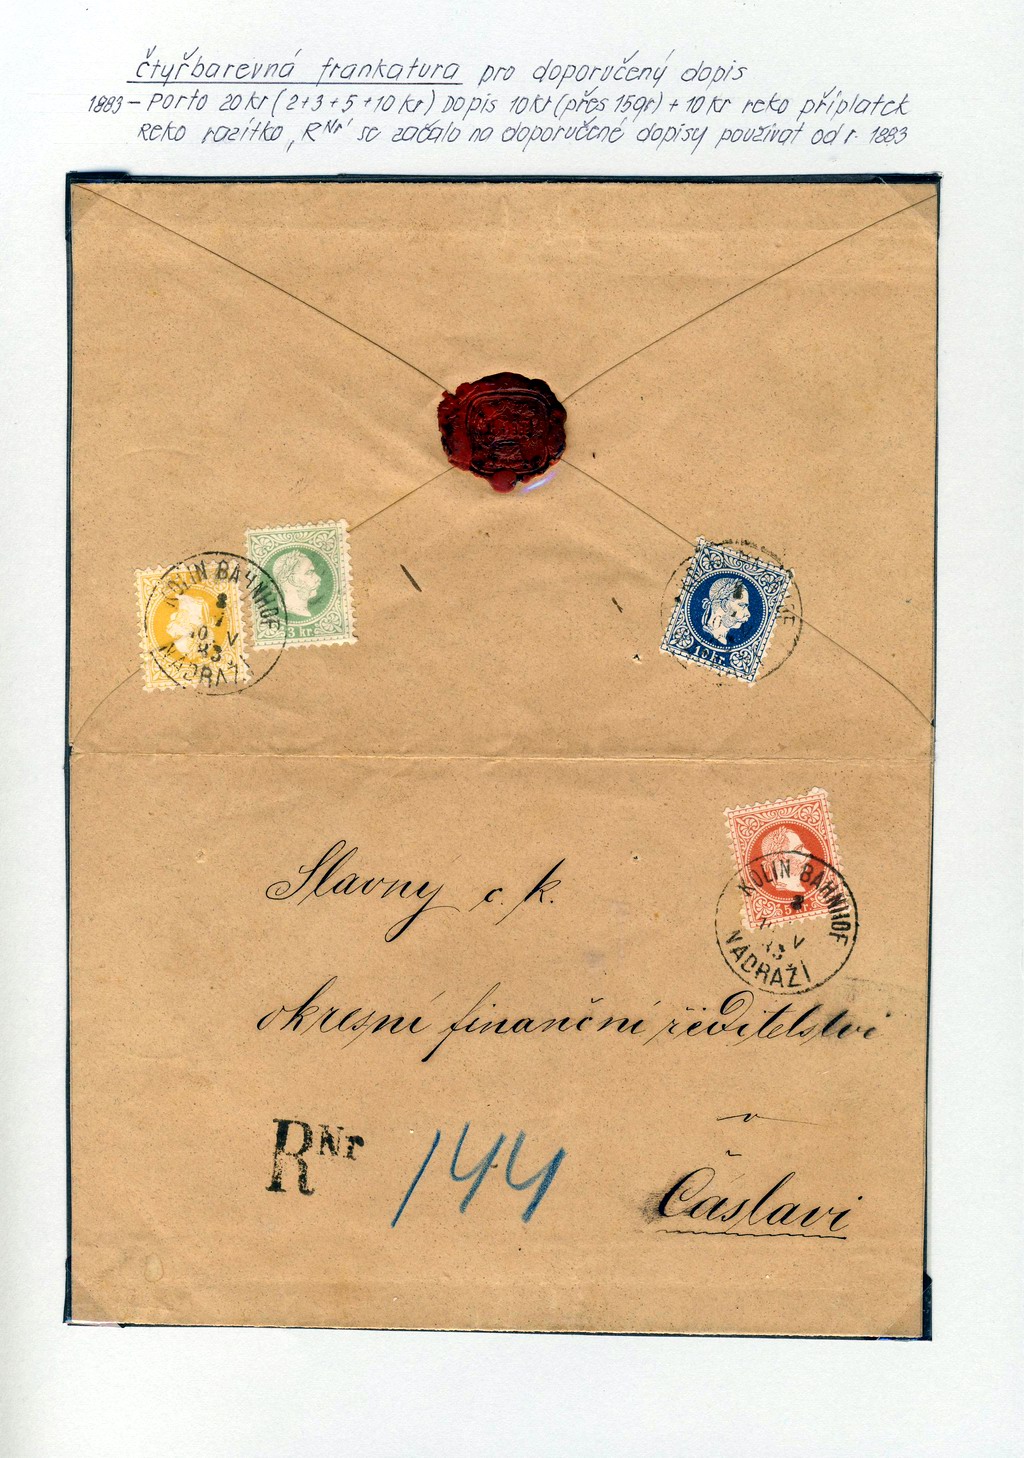 čtyřbarevná frankatura pro doporučený dopis
1883 – Porto 20 kr (2+3+5+10 kr) Dopis 10 kr (přes 15 gr) + 10 kr reko příplatek
Reko razítko „RNr“ se začalo na doporučené dopisy používat od r. 1883
KOLIN BAHNHOF
10 V
83
NÁDRAŽÍ
3 kr.
10 kr
KOLIN BAHNHOF
V
83
NÁDRAŽÍ
5 kr.
Slavný c. k.
okresní finanční ředitelství
v
Čáslavi
RNr 144